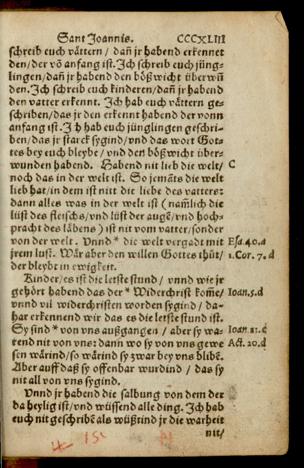 Sant Joannis. CCCXLIII
schreib euch vättern / dañ jr habend erkennet
den / der võ anfang ist. Ich schreib euch jüng-
lingen / dañ jr habend den bößwicht überwũ
den. Ich schreib euch kinderen / dañ jr habend
den vatter erkennt. Ich hab euch vättern ge-
schriben / das jr den erkennt habend der vonn
anfang ist. Ich hab euch jünglingen geschri-
ben / das jr starck sygind / vnd das wort Got-
tes bey euch bleybe / vnd den bößwicht über-
wunden habend. Habend nit lieb die welt /
noch das in der welt ist. So jemãts die welt
lieb hat / in dem ist nitt die liebe des vatters:
dann alles was in der welt ist (namlich die
lüst des fleischs / vnd lüst der augẽ / vnd hoch-
pracht des läbens) ist nit vom vatter / sonder
von der welt. Vnnd * die welt vergadt mit
jrem lust. Wär aber den willen Gottes thůt /
der bleybt in ewigkeit.
Kinder / es ist die letste stund / vnnd wie jr
gehört habend das der * Widerchrist kom̃e /
vnnd vil widerchristen worden sygind / da-
har erkennend wir das es die letste stund ist.
Sy sind * von vns außgangen / aber sy wa-
rend nit von vns: dann wo sy von vns gewe
sen wärind / so wärind sy zwar bey vns blibẽ.
Aber auff daß sy offenbar wurdind / das sy
nit all von vns sygind.
Vnnd jr habend die salbung von dem der
da heylig ist / vnd wüssend alle ding. Ich hab
euch nit geschribẽ als wüßtind jr die warheit
nit /
C
Esa. 40. a
1. Cor. 7. d
Ioan. 5. d
Act. 20. d